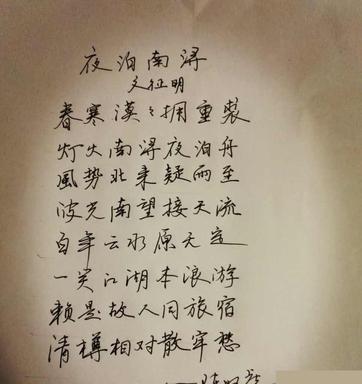 夜泊南浔
文征明
春寒漠々拥重裘
灯火南浔夜泊舟
風势北来疑雨至
波光南望接天流
百年云水原无定
一笑江湖本浪游
赖是故人同旅宿
清樽相对散牢愁